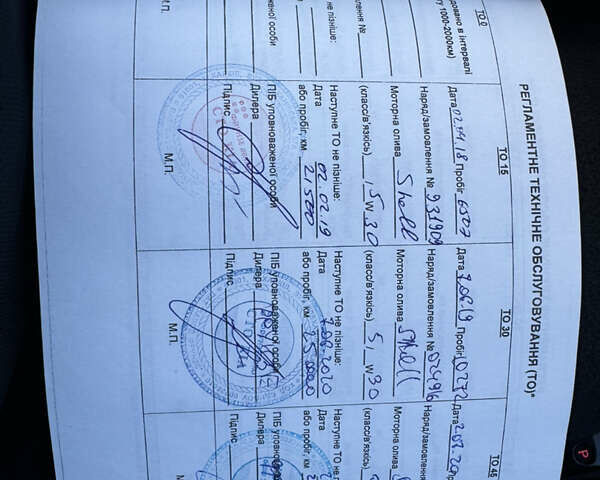 РЕГЛАМЕНТНЕ ТЕХНІЧНЕ ОБСЛУГОВУВАННЯ (ТО)*
ТО 0
довано в інтервалі
1000-2000км)
лення №
не пізніше:
женої особи
М.П.
ТО 15
Дата 02.11.18 Пробіг 6507
Наряд/замовлення № 931909
Моторна олива Shell
(класс/в'язкість) 5 W 30
Наступне ТО не пізніше:
Дата 02.02.19
або пробіг, км 21 500
ПІБ уповноваженої особи
Дилера
Підпис
М.П.
ТО 30
Дата 7.06.19 Пробіг 10272
Наряд/замовлення № 024916
Моторна олива Shell
(класс/в'язкість) 5 W 30
Наступне ТО не пізніше:
Дата 7.06.2020
або пробіг, км 25 000
ПІБ уповноваженої особи
Дилера
Підпис
М.П.
ТО 45
Дата
Наряд/замовлення
Моторна олива
(класс/в'язкість)
Наступне ТО не п
Дата
або пробіг, км
ПІБ уповнова
Дилера
Підпис
P